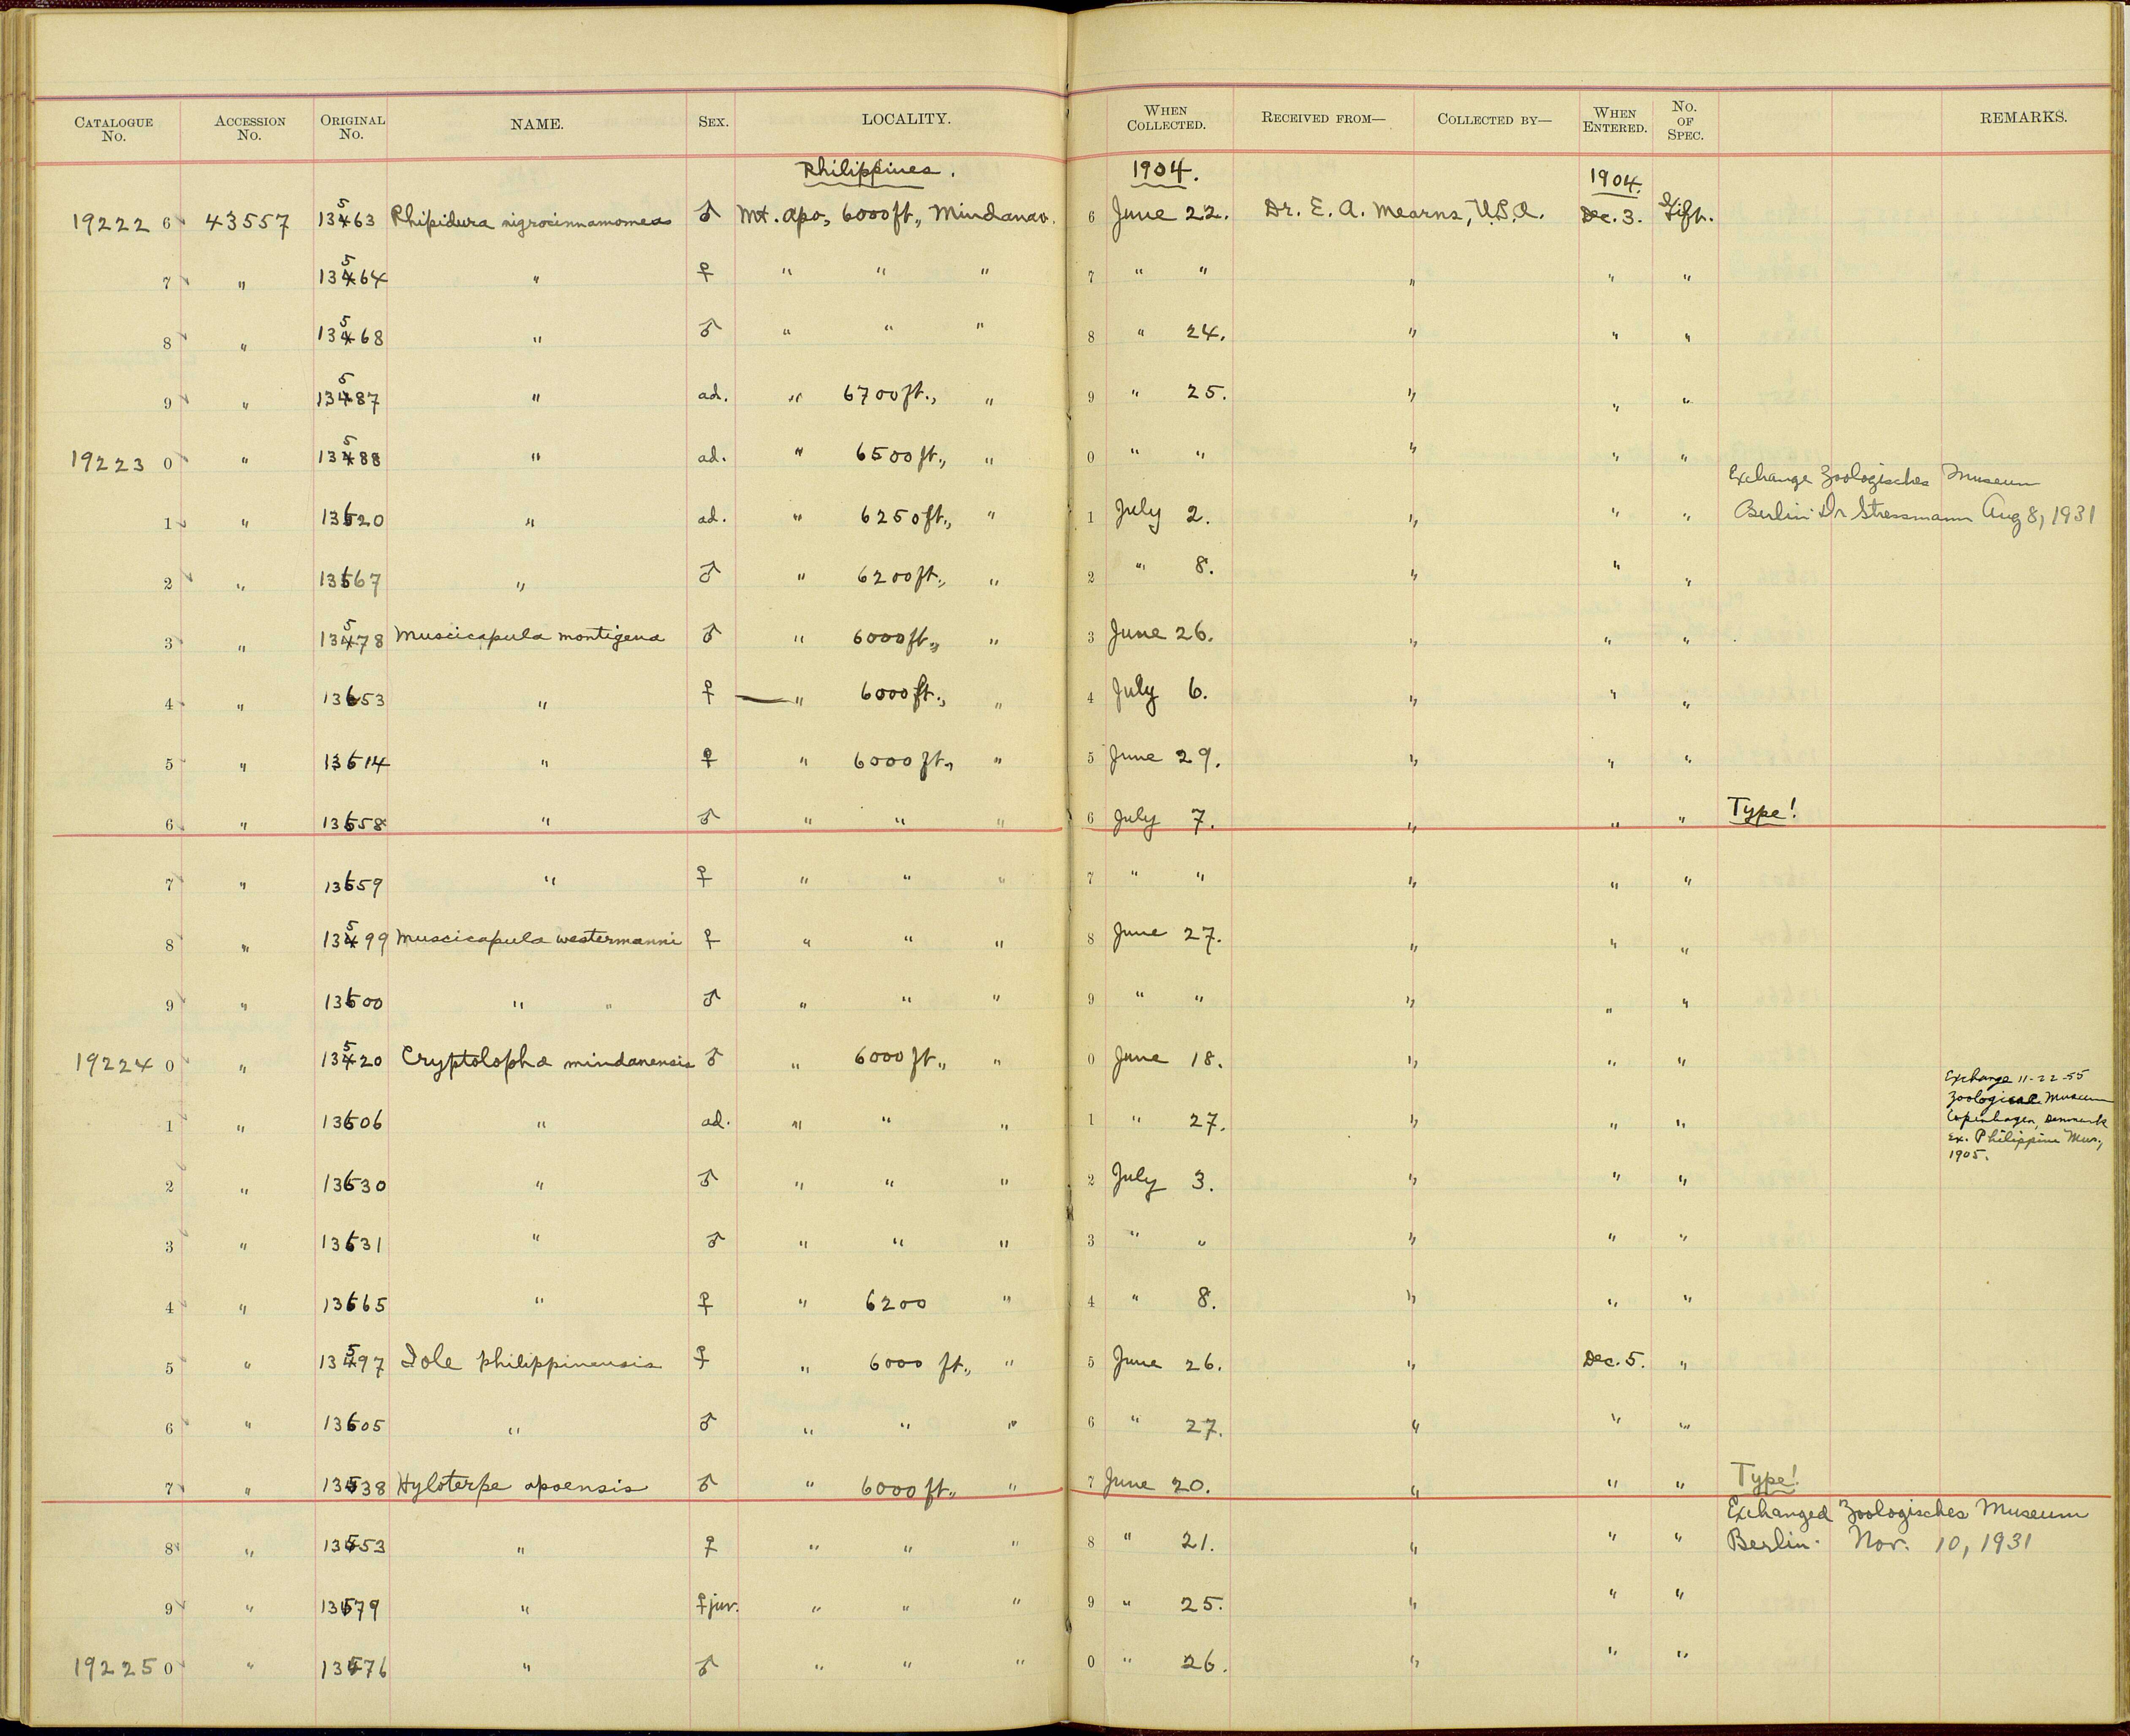 CATALOGUE No. ACCESSION No. ORIGINAL No. NAME. SEX. LOCALITY. WHEN COLLECTED. RECEIVED FROM— COLLECTED BY— WHEN ENTERED. No. OF SPEC. REMARKS.
Philippines. 1904. 1904.
19222 6 43557 13463 5 Rhipidura nigrocinnamomea ♂ Mt. Apo, 6000 ft., Mindanao. 6 June 22. Dr. E. A. Mearns, U.S.A. Dec. 3. Gift.
7 " 13464 5 " ♀ " " " 7 " " " " "
8 " 13468 5 " ♂ " " " 8 " 24. " " "
9 " 13487 5 " ad. " 6700 ft., " 9 " 25. " " "
19223 0 " 13488 5 " ad. " 6500 ft., " 0 " " " " "
Exchange Zoologisches Museum
1 " 13620 " ad. " 6250 ft., " 1 July 2. " " " Berlin Dr Stressmann Aug 8, 1931
2 " 13667 " ♂ " 6200 ft., " 2 " 8. " " "
3 " 13478 5 Muscicapula montigena ♂ " 6000 ft., " 3 June 26. " " "
4 " 13653 " ♀ — " 6000 ft., " 4 July 6. " " "
5 " 13614 " ♀ " 6000 ft., " 5 June 29. " " "
6 " 13658 " ♂ " " " 6 July 7. " " " Type!
7 " 13659 " ♀ " " " 7 " " " " "
8 " 13499 5 Muscicapula westermanni ♀ " " " 8 June 27. " " "
9 " 13600 " " ♂ " " " 9 " " " " "
19224 0 " 13420 5 Cryptolopha mindanensis ♂ " 6000 ft., " 0 June 18. " " "
Exchange 11-22-55
Zoological Museum
1 " 13606 " ad. " " " 1 " 27. " " " Copenhagen, Denmark
Ex. Philippine Mus.,
1905.
2 " 13630 " ♂ " " " 2 July 3. " " "
3 " 13631 " ♂ " " " 3 " " " " "
4 " 13665 " ♀ " 6200 " 4 " 8. " " "
5 " 13497 5 Iole philippinensis ♀ " 6000 ft., " 5 June 26. " Dec. 5. "
6 " 13605 " ♂ " " " 6 " 27. " " "
7 " 13538 Hyloterpe apoensis ♂ " 6000 ft., " 7 June 20. " " " Type!
Exchanged Zoologisches Museum
8 " 13553 " ♀ " " " 8 " 21. " " " Berlin. Nov. 10, 1931
9 " 13579 " ♀ juv. " " " 9 " 25. " " "
19225 0 " 13576 " ♂ " " " 0 " 26. " " "